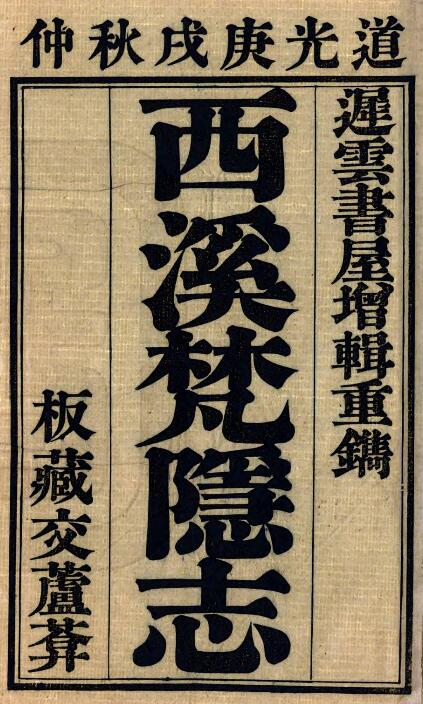 道光庚戌秋仲
遲雲書屋增輯重鐫
西溪梵隱志
板藏交蘆葊